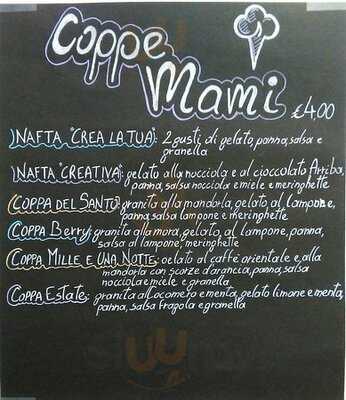 Coppe
Mami
€4.00
NAFTA "CREA LA TUA": 2 gusti di gelato, panna, salsa e
granella
NAFTA "CREATIVA": gelato alla nocciola e al cioccolato Arriba,
panna, salsa nocciola e miele e meringhette
COPPA DEL SANTO: granita alla mandorla, gelato al lampone,
panna, salsa lampone e meringhette
COPPA Berry: granita alla mora, gelato, al lampone, panna,
salsa al lampone, meringhette
COPPA MILLE E UNA NOTTE: gelato al caffè orientale e alla
mandorla con scorze d'arancia, panna, salsa
nocciola e miele e granella
COPPA ESTATE: granita all'cocomero e menta, gelato limone e menta,
panna, salsa fragola e granella